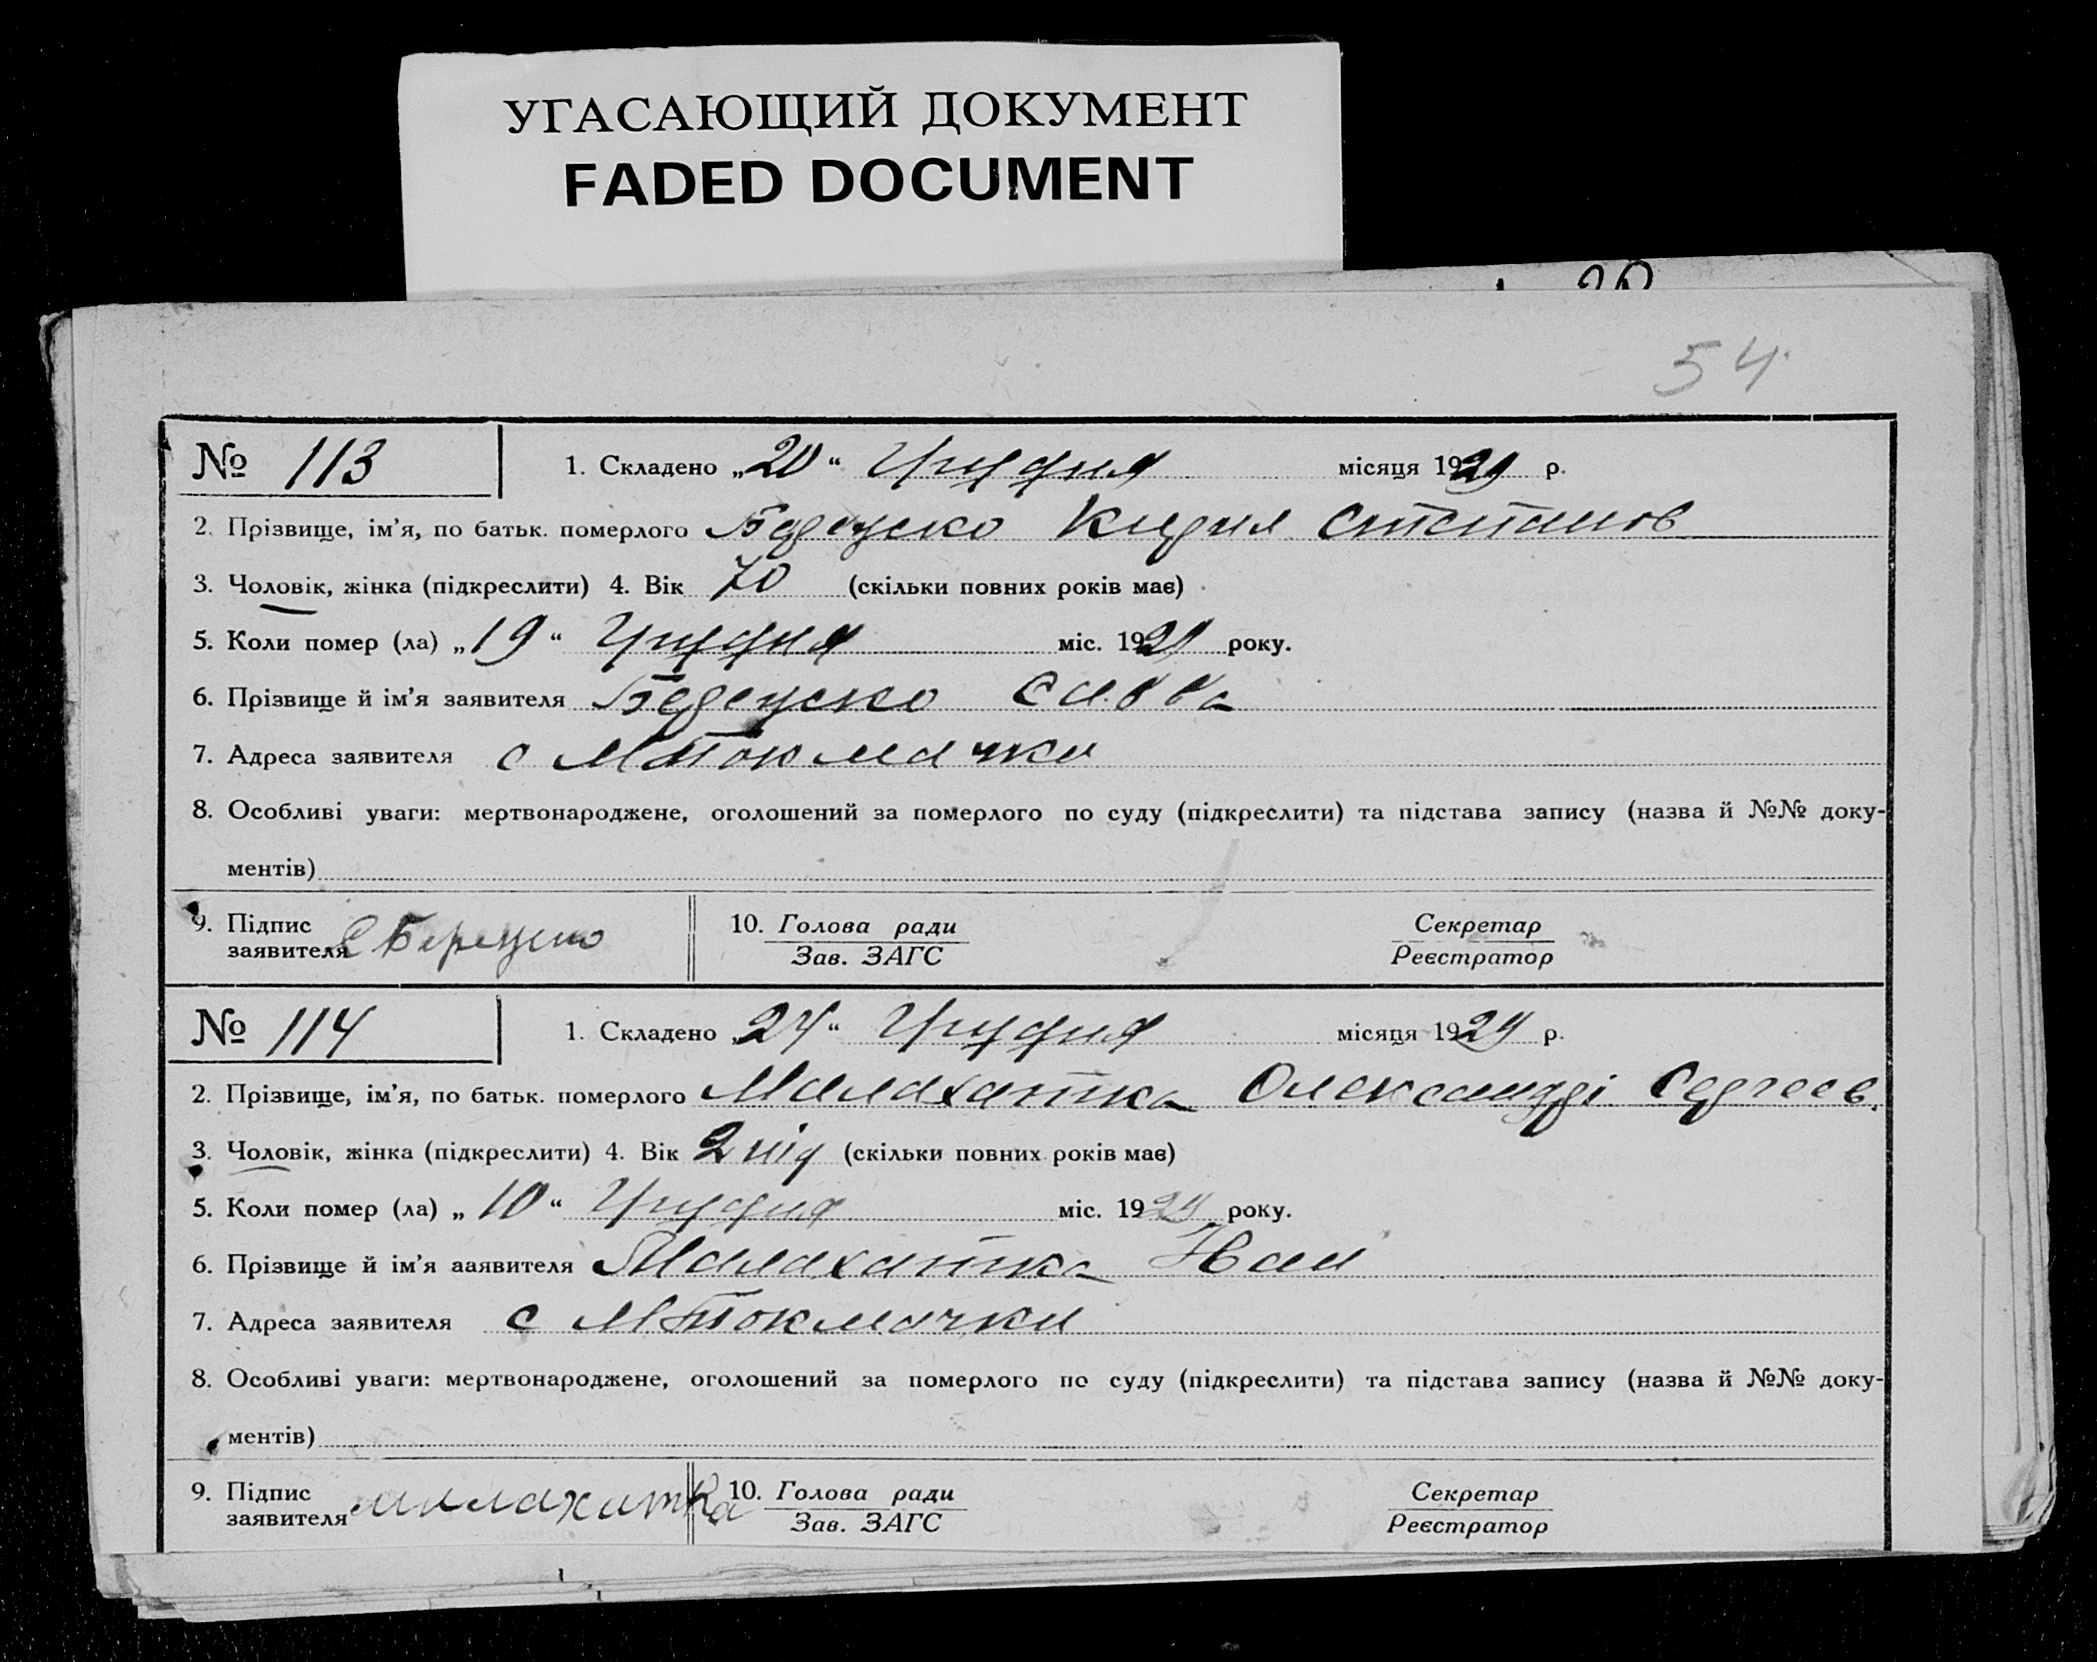 УГАСАЮЩИЙ ДОКУМЕНТ
FADED DOCUMENT
54
№ 113 1. Складено „20“ Грудня місяця 1929 р.
2. Прізвище, ім’я, по батьк. померлого Кирил Степанов
3. Чоловік, жінка (підкреслити) 4. Вік 70 (скільки повних років має)
5. Коли помер (ла) „19“ Грудня міс. 1929 року.
6. Прізвище й ім’я заявителя Савва
7. Адреса заявителя с М Токмачки
8. Особливі уваги: мертвонароджене, оголошений за померлого по суду (підкреслити) та підстава запису (назва й №№ доку-
ментів)
9. Підпис 10. Голова ради Секретар
заявителя Зав. ЗАГС Реєстратор
№ 114 1. Складено „24“ Грудня місяця 1929 р.
2. Прізвище, ім’я, по батьк. померлого Малахатка Олександрі Сергеев.
3. Чоловік, жінка (підкреслити) 4. Вік 2 (скільки повних років має)
5. Коли помер (ла) „10“ Грудня міс. 1929 року.
6. Прізвище й ім’я заявителя Малахатка
7. Адреса заявителя с М Токмачки
8. Особливі уваги: мертвонароджене, оголошений за померлого по суду (підкреслити) та підстава запису (назва й №№ доку-
ментів)
9. Підпис малахатка 10. Голова ради Секретар
заявителя Зав. ЗАГС Реєстратор